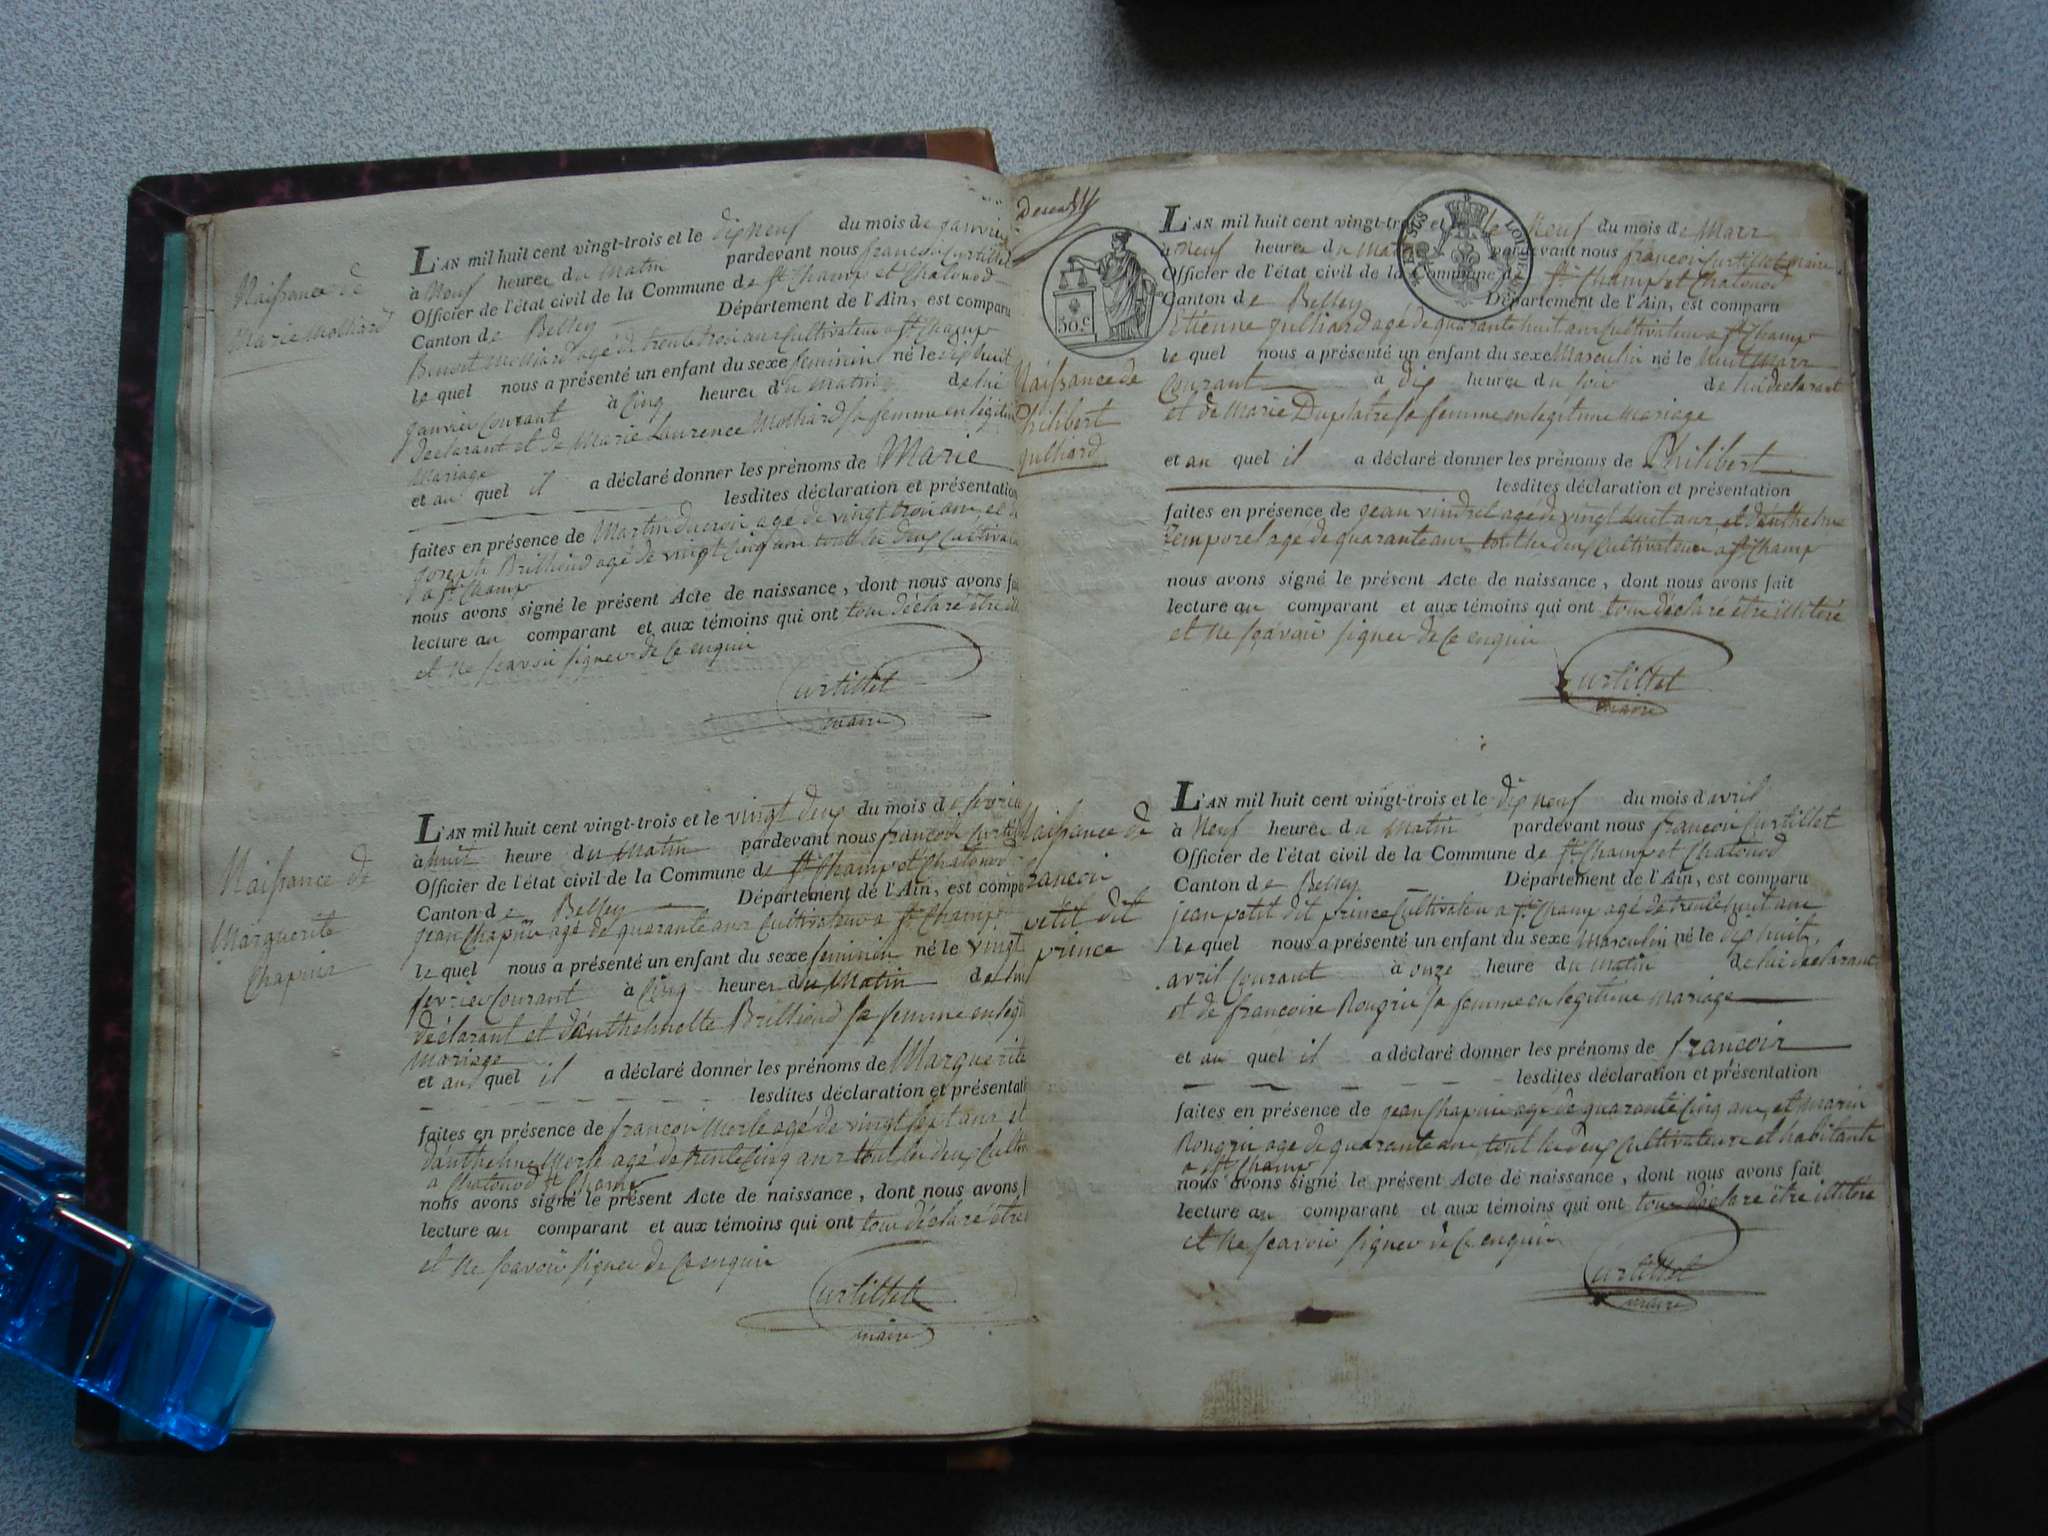 Naissance de
Marie Molliard
L'AN mil huit cent vingt-trois et le dix neuf du mois de janvier
à Neuf heures du Matin pardevant nous francois Curtillet
Officier de l'état civil de la Commune de St Champ et Chatonod
Canton de Belley Département de l'Ain, est comparu
Benoit Molliard agé de trente trois ans Cultivateur a St Champ
le quel nous a présenté un enfant du sexe feminin né le dix huit
janvier courant à Cinq heures du Matin de lui
declarant et de Marie Laurence Molliard sa femme en légitime
Mariage
et au quel il a déclaré donner les prénoms de Marie
lesdites déclaration et présentation
faites en présence de Martin agé de vingt trois ans et de
joseph Brilliod agé de vingt cinq ans tout les deux Cultivat
a St Champ
nous avons signé le présent Acte de naissance, dont nous avons fai
lecture au comparant et aux témoins qui ont tous déclaré être
et ne scavoir signer de ce enquis
Curtillet
maire
Naissance de
Marguerite
Chapuis
L'AN mil huit cent vingt-trois et le vingt deux du mois de fevrie
à huit heure du Matin pardevant nous francois Curtil
Officier de l'état civil de la Commune de St Champ et Chatonod
Canton de Belley Département de l'Ain, est compa
jean Chapuis agé de quarante ans Cultivateur a St Champ
le quel nous a présenté un enfant du sexe feminin né le vingt
fevrier courant à Cinq heures du Matin de lui
déclarant et d'anthelmette Brilliod sa femme en legi
Mariage
et au quel il a déclaré donner les prénoms de Marguerite
lesdites déclaration et présentati
faites en présence de francois Merle agé de vingt sept ans et
d'anthelme Merle agé de trente cinq ans tout les deux Cultiv
a Chatonod St Champ
nous avons signé le présent Acte de naissance, dont nous avons f
lecture au comparant et aux témoins qui ont tous déclaré être
et ne scavoir signer de ce enquis
Curtillet
maire
30.c
Naissance de
Philibert
julliard
L'AN mil huit cent vingt-trois et le Neuf du mois de Mars
à Neuf heures du Ma pardevant nous francois Curtillet maire
Officier de l'état civil de la Commune de St Champ et Chatonod
Canton de Belley Département de l'Ain, est comparu
etienne julliard agé de quarante huit ans Cultivateur a St Champ
le quel nous a présenté un enfant du sexe Masculin né le huit Mars
Courant à dix heures du soir de lui déclarant
et de Marie Duplatre sa femme en legitime Mariage
et au quel il a déclaré donner les prénoms de Philibert
lesdites déclaration et présentation
faites en présence de jean vindret agé de vingt huit ans et d'anthelme
Temporel agé de quarante ans tout les deux Cultivateurs a St Champ
nous avons signé le présent Acte de naissance, dont nous avons fait
lecture au comparant et aux témoins qui ont tous déclaré être illitéré
et ne sçavoir signer de ce enquis
Curtillet
maire
Naissance de
francois
petit dit
prince
L'AN mil huit cent vingt-trois et le dix neuf du mois d'avril
à Neuf heures du Matin pardevant nous francois Curtillet
Officier de l'état civil de la Commune de St Champ et Chatonod
Canton de Belley Département de l'Ain, est comparu
jean petit dit prince Cultivateur a St Champ agé de trente huit ans
le quel nous a présenté un enfant du sexe Masculin né le dix huit
avril Courant à onze heure du matin de lui declarant
et de francoise Rougrin sa femme en legitime Mariage
et au quel il a déclaré donner les prénoms de francois
lesdites déclaration et présentation
faites en présence de jean Chapuis agé de quarante cinq ans et marin
Rougrin agé de quarante ans tout les deux Cultivateurs et habitants
a St Champ
nous avons signé le présent Acte de naissance, dont nous avons fait
lecture au comparant et aux témoins qui ont tous déclaré être illitéré
et ne scavoir signer de ce enquis
Curtillet
maire